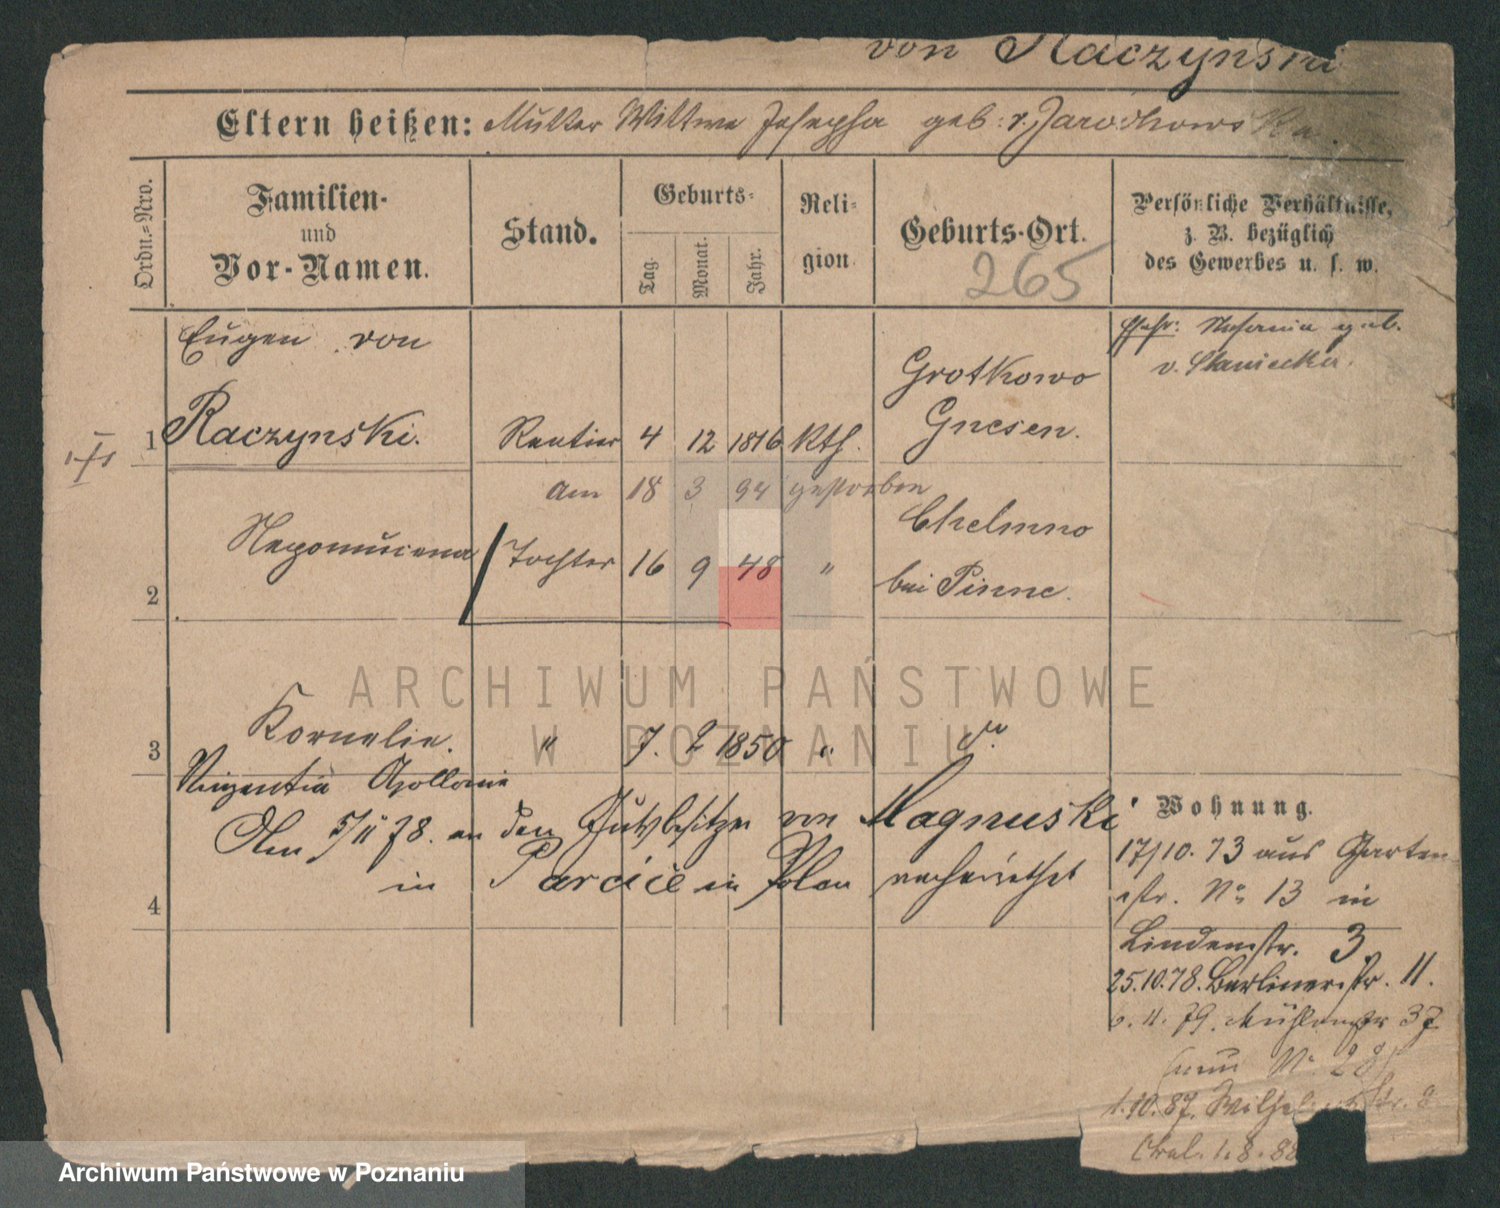 von Raczynski
Eltern heißen: Mutter Wittwe Josepha geb: v. Jarochowska.
Ordn.-Nro.
Familien-
und
Vor-Namen.
Stand.
Geburts-
Tag.
Monat.
Jahr.
Reli-
gion
Geburts-Ort.
265
Persönliche Verhältnisse,
z. B. bezüglich
des Gewerbes u. s. w.
1
Eugen von
Raczynski.
Rentier 4 12 1816 Kth.
Grotkowo
Gnesen.
Ehefr: Stefania geb.
v. Staniecka.
am 18 3 94 gestorben
2
Nepomucena
Tochter 16 9 48 "
Chelmno
bei Pinne.
3
Kornelie.
" 7. 2 1850 " do
Vinzentia Apollonia
4
Am 5/11 78. an den Gutsbesitzer von Magnuski
in Parcice in Polen verheirathet
Wohnung.
17/10. 73 aus Garten-
str. No 13 in
Lindenstr. 3
25.10.78. Berlinerstr. 11.
11. 79. Mühlenstr 37
(nun No. 28)
1.10.87. Wilhelmstr.
1.8.88
ARCHIWUM PAŃSTWOWE
W POZNANIU
Archiwum Państwowe w Poznaniu